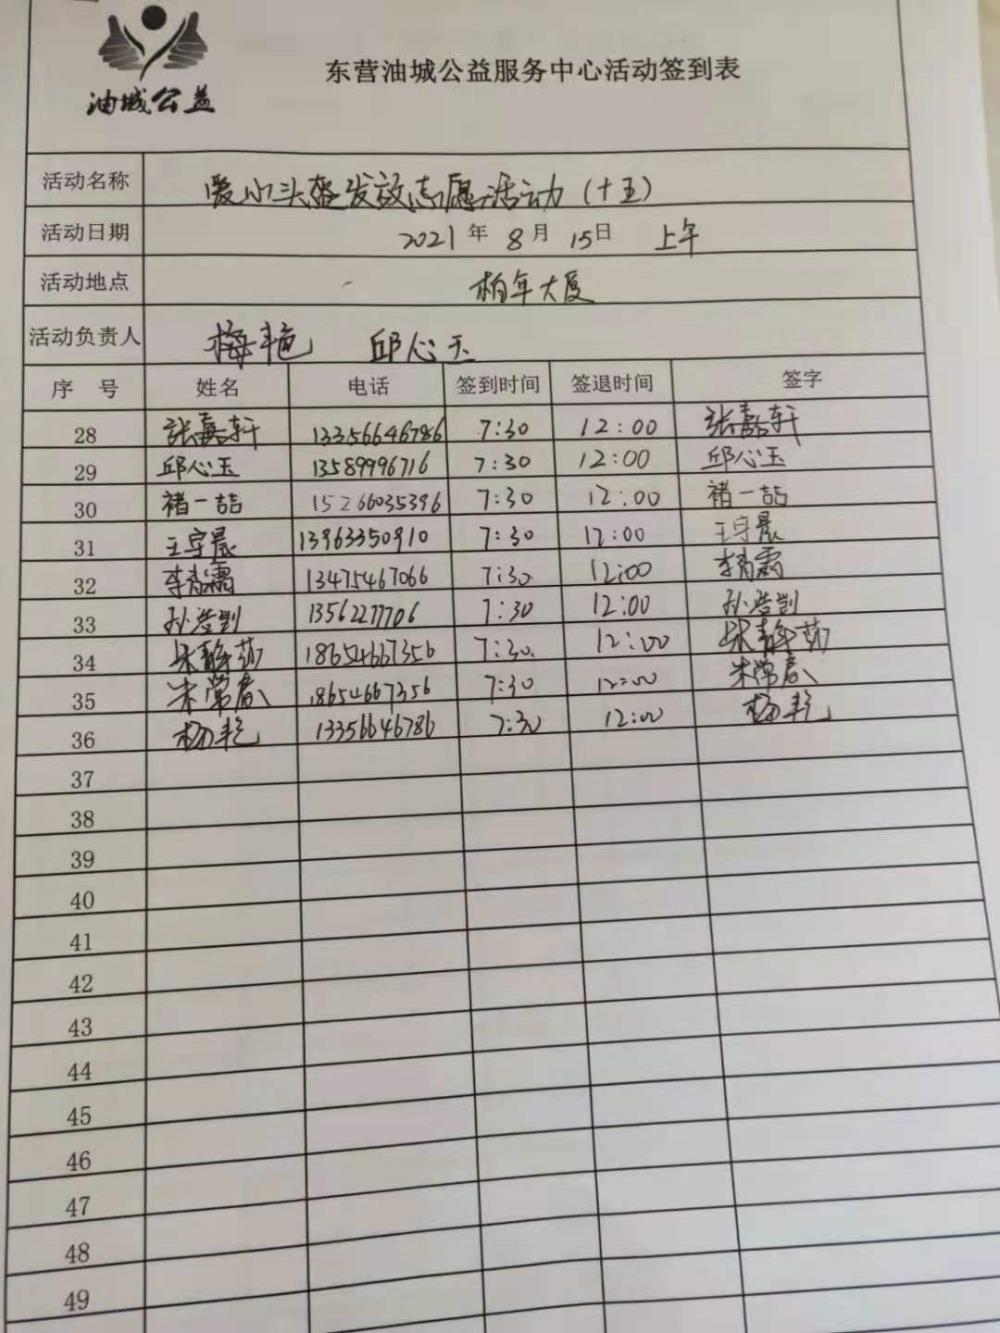 油城公益
东营油城公益服务中心活动签到表
活动名称 爱心头盔发放志愿活动（十五）
活动日期 2021年 8月 15日 上午
活动地点 柏年大厦
活动负责人 梅艳 邱心玉
序 号 姓名 电话 签到时间 签退时间 签字
28 张嘉轩 13356646786 7:30 12:00 张嘉轩
29 邱心玉 13589996716 7:30 12:00 邱心玉
30 褚一喆 15266035396 7:30 12:00 褚一喆
31 王宇晨 13963350910 7:30 12:00 王宇晨
32 李肖霖 13475467066 7:30 12:00 李肖霖
33 孙浩 13562277706 7:30 12:00 孙浩
34 宋静茹 18654667356 7:30 12:00 宋静茹
35 朱常春 18654667356 7:30 12:00 朱常春
36 杨艳 13356646786 7:30 12:00 杨艳
37
38
39
40
41
42
43
44
45
46
47
48
49